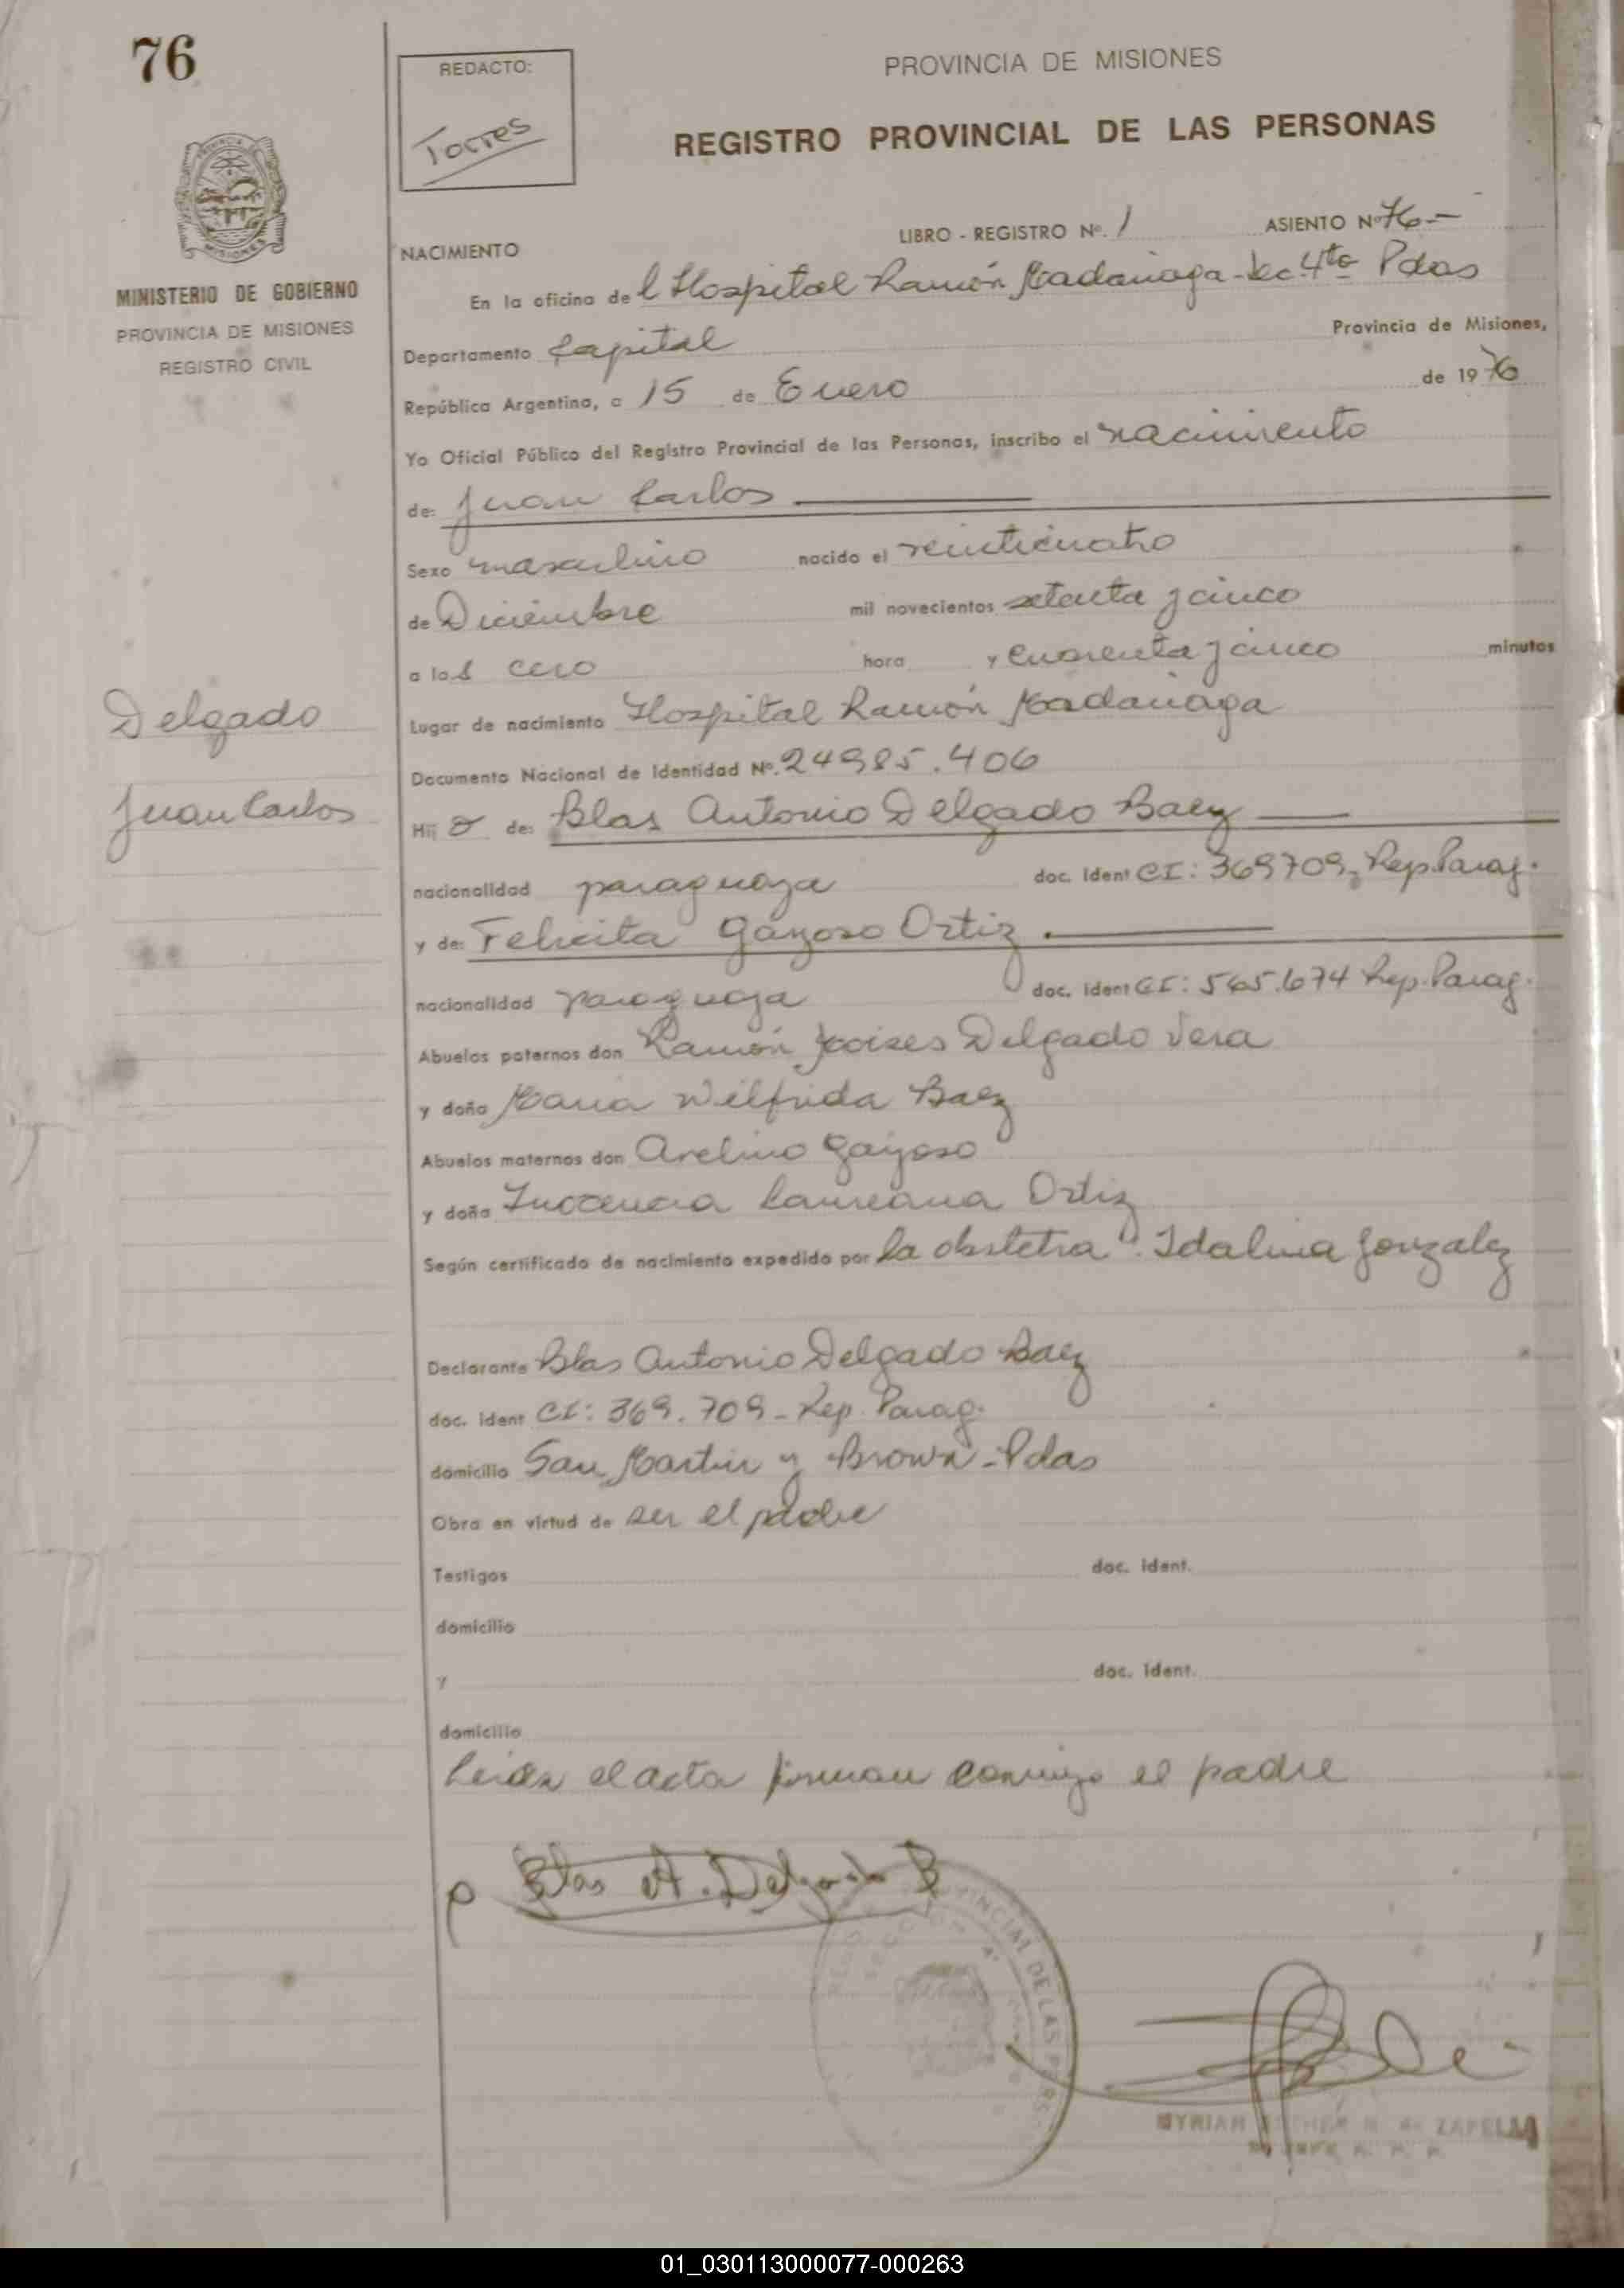 76
REDACTO:
Torres
PROVINCIA DE MISIONES
REGISTRO PROVINCIAL DE LAS PERSONAS
MISIONES
MINISTERIO DE GOBIERNO
PROVINCIA DE MISIONES
REGISTRO CIVIL
LIBRO - REGISTRO Nº. 1 ASIENTO Nº 76-
NACIMIENTO
En la oficina del Hospital Ramón Madariaga - Sec. 4ta Pdas
Departamento Capital Provincia de Misiones,
República Argentina, a 15 de Enero de 1976
Yo Oficial Público del Registro Provincial de las Personas, inscribo el nacimiento
de: Juan Carlos
Sexo masculino nacido el veinticuatro
de Diciembre mil novecientos setenta y cinco
a las cero hora y cuarenta y cinco minutos
Delgado
Juan Carlos
Lugar de nacimiento Hospital Ramón Madariaga
Documento Nacional de Identidad Nº. 24985.406
Hijo de: Blas Antonio Delgado Baez
nacionalidad paraguaya doc. ident CI: 369709- Rep. Parag.
y de: Felicita Gayoso Ortiz.
nacionalidad paraguaya doc. ident CI: 565.674 Rep. Parag.
Abuelos paternos don Ramón Moises Delgado Vera
y doña Maria Wilfrida Baez
Abuelos maternos don Avelino Gayoso
y doña Inocencia Laureana Ortiz
Según certificado de nacimiento expedido por la obstetra Idalina Gonzalez
Declarante Blas Antonio Delgado Baez
doc. ident CI: 369.709- Rep. Parag.
domicilio San Martin y Brown - Pdas
Obra en virtud de ser el padre
Testigos doc. ident.
domicilio
y doc. ident.
domicilio
Leida el acta firman conmigo el padre
Blas A. Delgado B
PROVINCIAL DE LAS PERS.
MYRIAN ESTHER N. de ZAPELLA
01_030113000077-000263